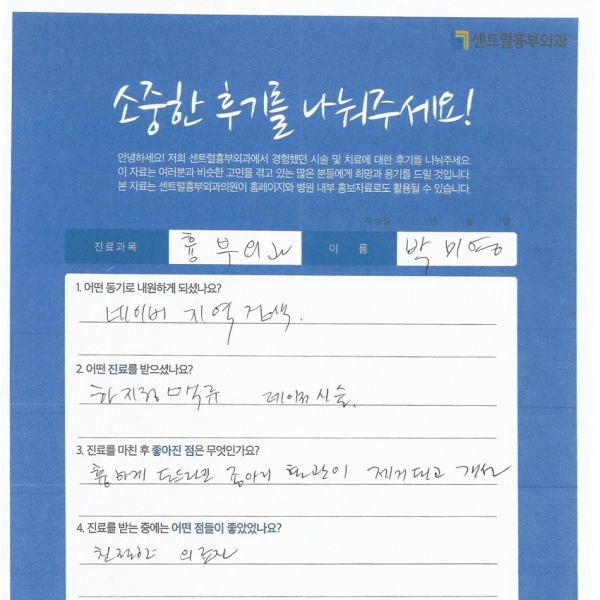 센트럴흉부외과
소중한 후기를 나눠주세요!
안녕하세요! 저희 센트럴흉부외과에서 경험했던 시술 및 치료에 대한 후기를 나눠주세요.
이 자료는 여러분과 비슷한 고민을 겪고 있는 많은 분들에게 희망과 용기를 드릴 것입니다.
본 자료는 센트럴흉부외과의원이 홈페이지와 병원 내부 홍보자료로도 활용될 수 있습니다.
작성일 년 월 일
진료과목 흉부외과 이 름 박미영
1. 어떤 동기로 내원하게 되셨나요?
네이버 지역검색.
2. 어떤 진료를 받으셨나요?
하지정맥류 레이저시술.
3. 진료를 마친 후 좋아진 점은 무엇인가요?
흉하게 도드라진 종아리 혈관이 제거되고 개선
4. 진료를 받는 중에는 어떤 점들이 좋았었나요?
친절한 의료진